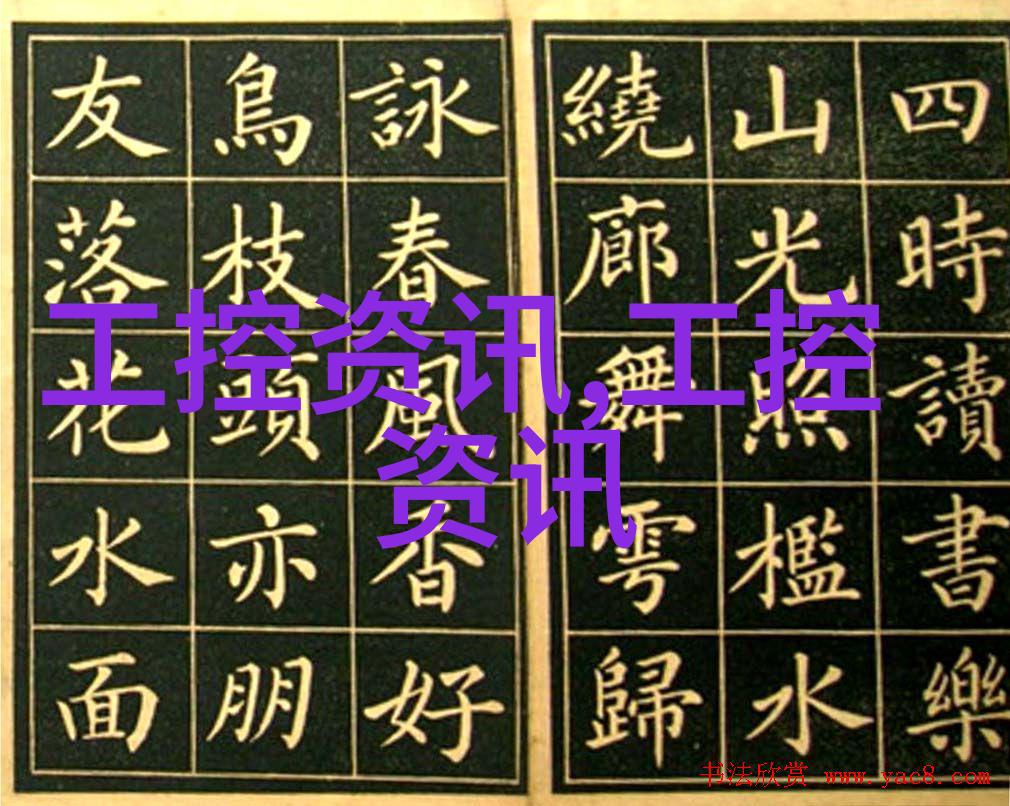 四時讀書樂
山光照檻水
繞廊舞雩歸
詠春風香好
鳥枝頭亦朋
友落花水面
工控资讯,工控
资讯
书法欣赏 www.yac8.com